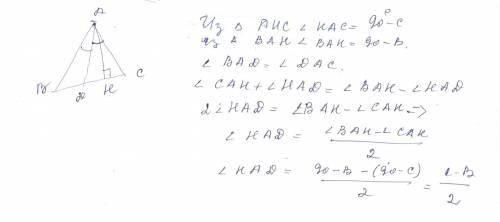 A
B D H C
Из Δ AHC ∠ HAC = 90° - C
из Δ BAH ∠ BAH = 90 - B.
∠ BAD = ∠ DAC.
∠ CAH + ∠ HAD = ∠ BAH - ∠ HAD
2∠HAD = ∠BAH - ∠CAH ⇒
∠ HAD = (∠BAH - ∠CAH) / 2
∠ HAD = (90 - B - (90 - C)) / 2 = (C - B) / 2